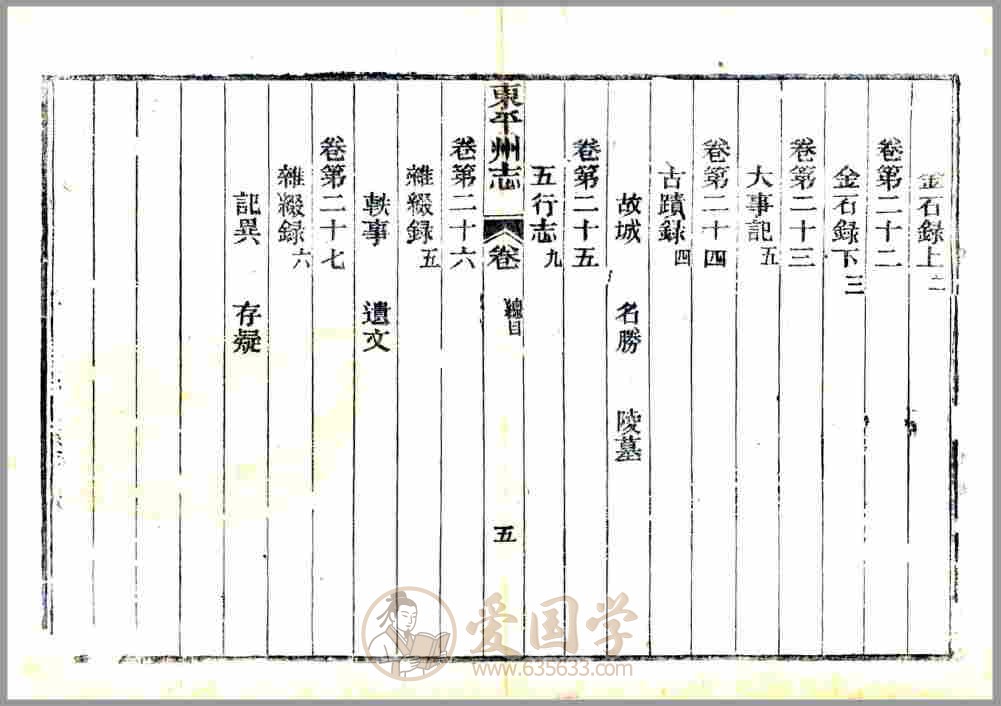 金石録上二
卷第二十二
金石録下三
卷第二十三
大事記五
卷第二十四
古蹟録四
故城 名勝 陵墓
卷第二十五
五行志九
東平州志 卷 總目 五
卷第二十六
雜綴録五
軼事 遺文
卷第二十七
雜綴録六
記異 存疑
爱国学
www.635633.com